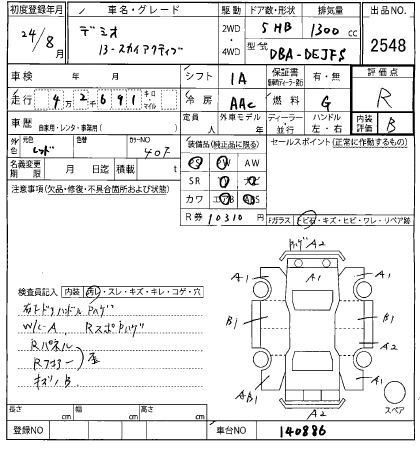 初度登録年月 車名・グレード 駆動 ドア数・形状 排気量 出品NO.
24/8月 デミオ 2WD・4WD 5 HB 1300cc 2548
13-スカイアクティブ 型式 DBA-DEJFS
車検 年 月 シフト IA 保証書 有・無 評価点
走行 4万2千691 キロ マイル 冷房 AAC 燃料 G R
車歴 自家用・レンタ・事業用( ) 定員 人 外車モデル 年 ディーラー・並行 ハンドル 左・右 内装評価 B
外色 元色 レッド 色替 カラーNO 40F 装備品(純正品に限る) セールスポイント(正常に作動するもの)
名義変更期限 月 日迄 積載 t PS PW AW
注意事項(欠品・修復・不具合箇所および状態) SR ナビ
カワ エアB ABS
R券 10310円 Fガラス トビ石・キズ・ヒビ・ワレ・リペア跡
バックハゲ A2
検査員記入 内装 汚レ・スレ・キズ・キレ・コゲ・穴
右トドアハンドルPハゲ
W/C-A RスポPハゲ
Rパネル
Rフロアー
キズ/B
A1 A1 A1
B1 B1
A2
AB1 A1
A2 スペア
長さ cm 幅 cm 高さ cm
登録NO 車台NO 140886